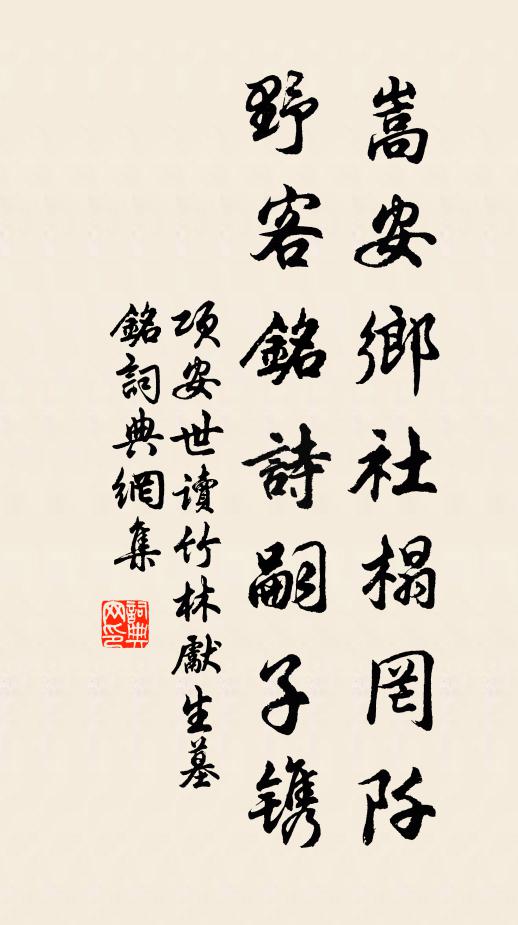 嵩安鄉社榻罔阡
野客銘詩嗣子镌
项安世读竹林獻生墓
銘詞典網集
詞典网印